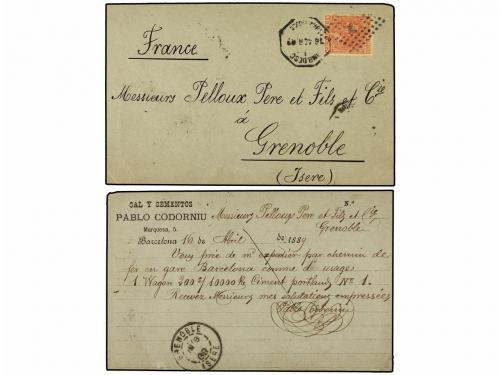 France
Messieurs Pelloux Pere et Fils et Cie
à
Grenoble
(Isere)
CAL Y CEMENTOS
PABLO CODORNIU
Marquesa, 5.
N.º
Messieurs Pelloux Pere et Fils et Cie
Grenoble
Barcelona 16 de Abril de 1889
Vous prie de m' expedier par chemin de
fer en gare Barcelona comme d' usage
1 Wagon 200 s/ 10000 Ks Ciment portland Nº 1.
Recevez Messieurs mes salutations empressées
Pablo Codorniu
GRENOBLE
ISERE